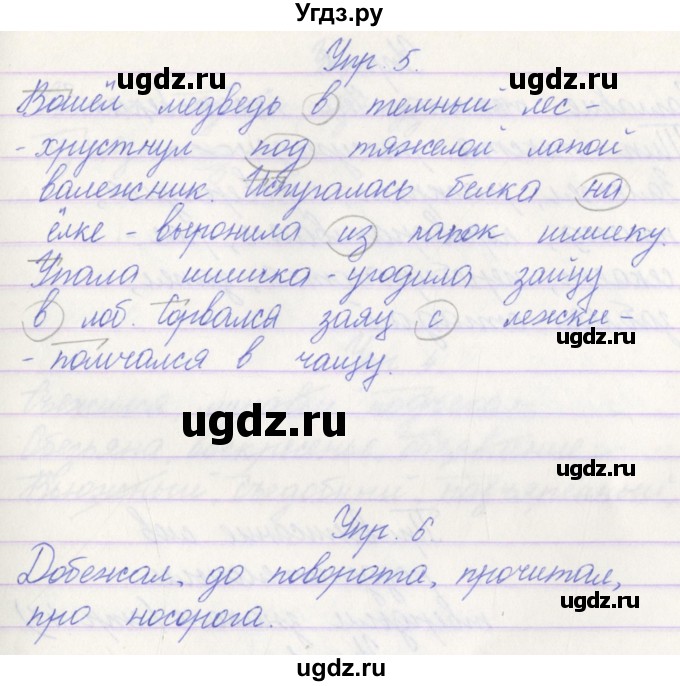 Угдз.ру
Упр. 5.
ugdz.ru ugdz.ru
Вошёл медведь в темный лес -
- хрустнул под тяжелой лапой
ugdz.ru
валежник. Испугалась белка на
ёлке - выронила из лапок шишку.
ugdz.ru
Упала шишка - угодила зайцу
в лоб. Сорвался заяц с лежки -
ugdz.ru
- помчался в чащу.
ugdz.ru
ugdz.ru
Упр. 6.
ugdz.ru
Добежал, до поворота, прочитал,
ugdz.ru
про носорога.
ugdz.ru